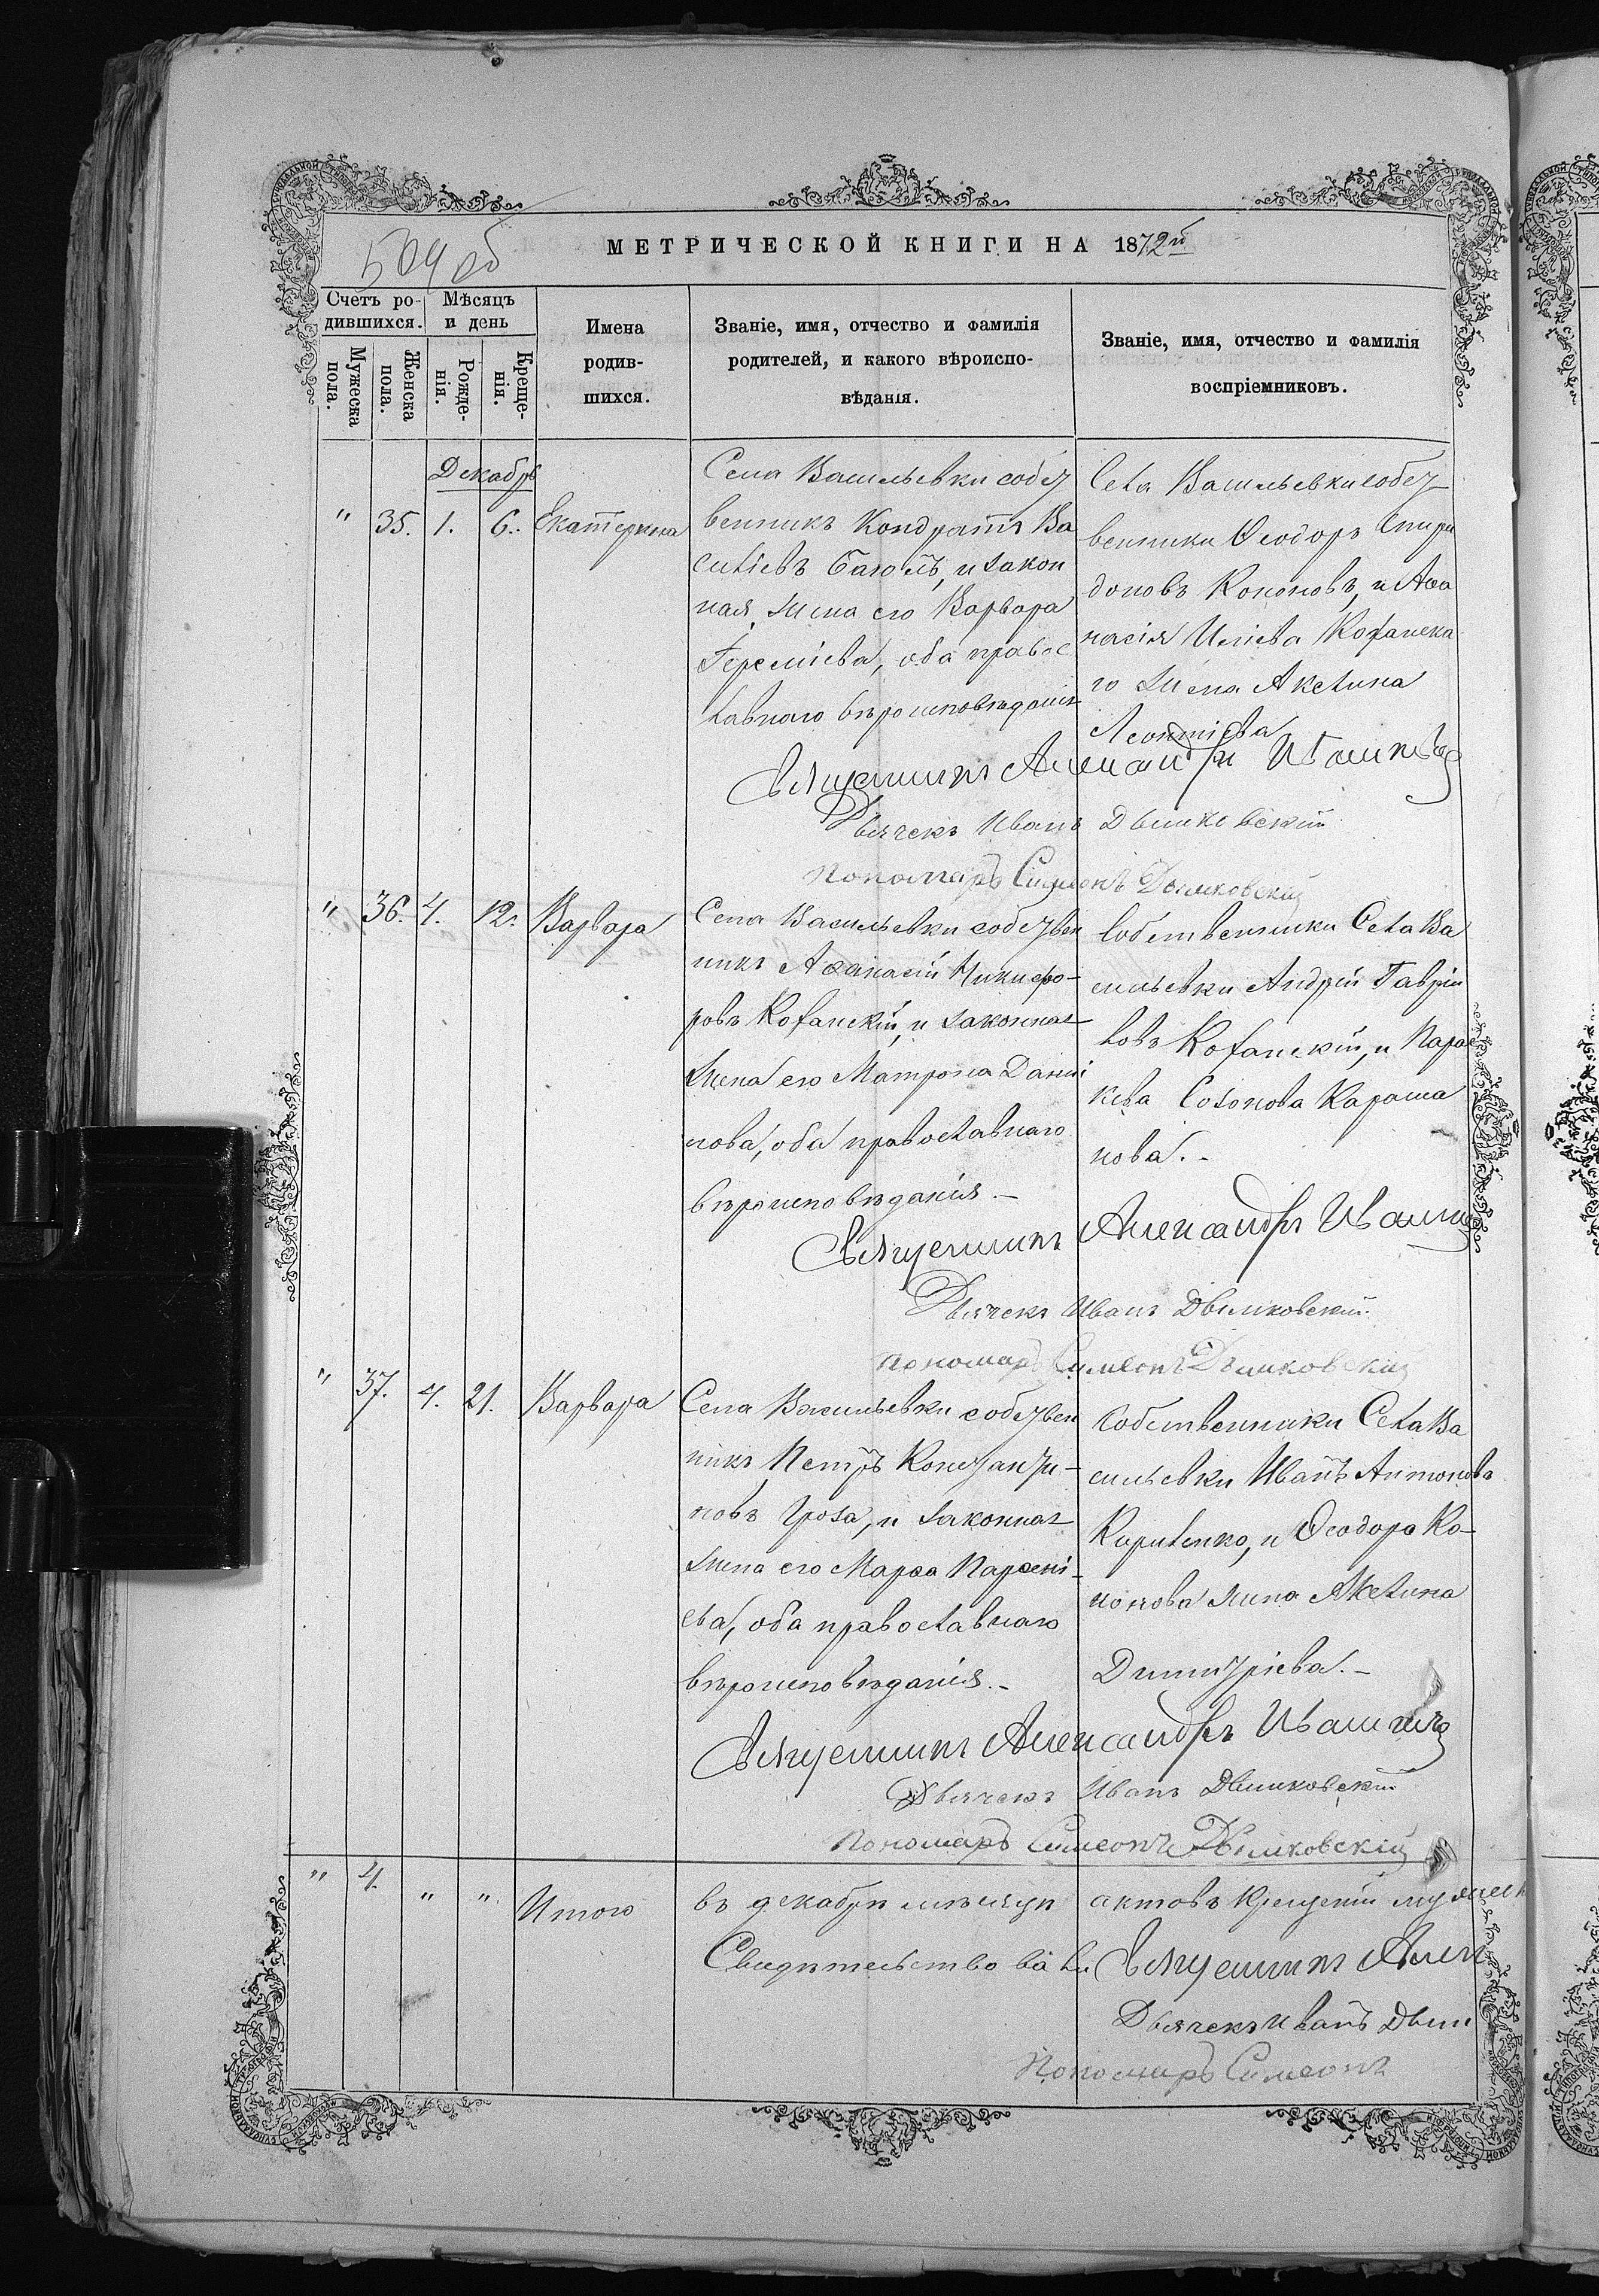 504 об
МЕТРИЧЕСКОЙ КНИГИ НА 1872й
Счетъ ро-
дившихся.
Мѣсяцъ
и день
Мужеска
пола.
Женска
пола.
Рожде-
нія.
Креще-
нія.
Имена
родив-
шихся.
Званіе, имя, отчество и фамилія
родителей, и какого вѣроиспо-
вѣданія.
Званіе, имя, отчество и фамилія
воспріемниковъ.
Декабрь
" 35. 1. 6. Екатерина
Села Васильевки собст
венникъ Кондратъ Ва
силіевъ и закон
ная жена его Варвара
Гереміева, оба правос
лавнаго вѣроисповѣданія
Села Васильевки собст
венники Ѳеодоръ Спири
доновъ Кононовъ, и Аѳа
насія Иліева Кофанска
го жена Акелина
Леонтіева
Священникъ Александръ Ивашкевъ
Дьячекъ Иванъ Дымковскій
Пономарь Симеонъ Дымковскій
" 36. 4. 12. Варвара
Села Васильевки собствен
никъ Аѳанасій Никифо-
ровъ Кофанскій, и законная
жена его Матрона Даниі
лова, оба православнаго
вѣроисповѣданія.-
Собственники Села Ва
сильевки Андрей Гаврии
ловъ Кофанскій, и Парас
кева Созонова Карама
нова.-
Священникъ Александръ Ивашк
Дьячекъ Иванъ Дымковскій
Пономарь Симеонъ Дымковскій
" 37. 4. 21. Варвара
Села Васильевки собствен
никъ Петръ Константи-
новъ Гроза, и законная
жена его Марѳа Парѳені-
ева, оба православнаго
вѣроисповѣданія.-
Собственники Села Ва
сильевки Иванъ Антоновъ
Кириленко, и Ѳеодора Ко-
нонова жена Акелина
Димитріева.-
Священникъ Александръ Ивашкевъ
Дьячекъ Иванъ Дымковскій
Пономарь Симеонъ Дымковскій
" 4. " " Итого въ декабрѣ мѣсяцѣ актовъ крещеній мужеск
Свидѣтельствовали: Священникъ Алек
Дьячекъ Иванъ Дым
Пономарь Симеонъ